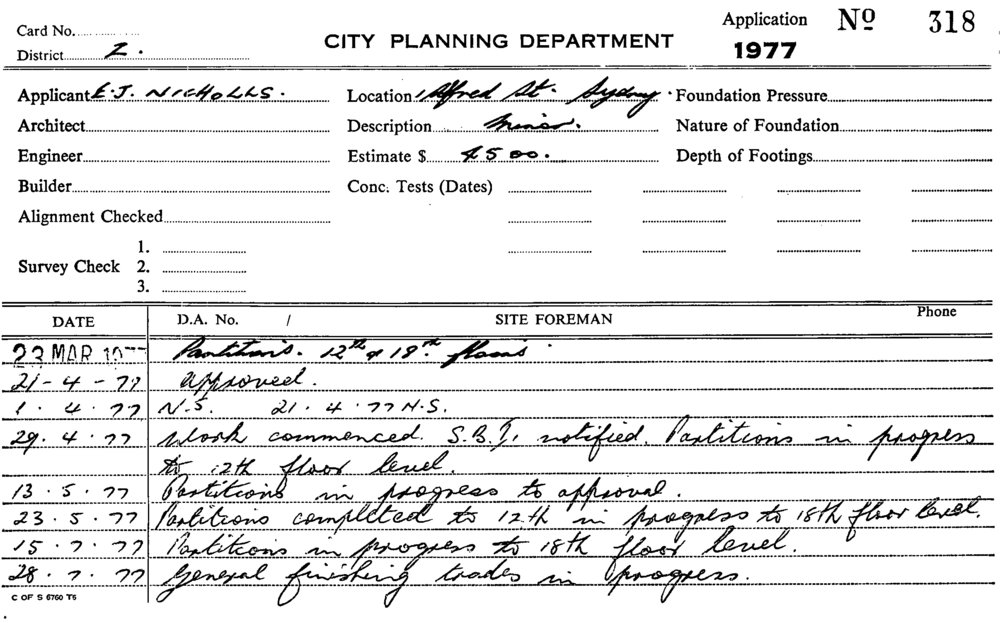 Card No.
District 2.
CITY PLANNING DEPARTMENT
Application Nº 318
1977
Applicant E.J. NICHOLLS.
Location 1 Alfred St. Sydney.
Foundation Pressure
Architect
Description Minor.
Nature of Foundation
Engineer
Estimate $ 4500.
Depth of Footings
Builder
Conc. Tests (Dates)
Alignment Checked
Survey Check
1.
2.
3.
DATE D.A. No. / SITE FOREMAN Phone
23 MAR 1977 Partitions. 12th & 18th floors
21-4-77 approved.
1.4.77 N.S. 21.4.77 N.S.
29.4.77 Work commenced. S.B.I. notified. Partitions in progress
to 12th floor level.
13.5.77 Partitions in progress to approval.
23.5.77 Partitions completed to 12th in progress to 18th floor level.
15.7.77 Partitions in progress to 18th floor level.
28.7.77 General finishing trades in progress.
C OF S 6760 T6